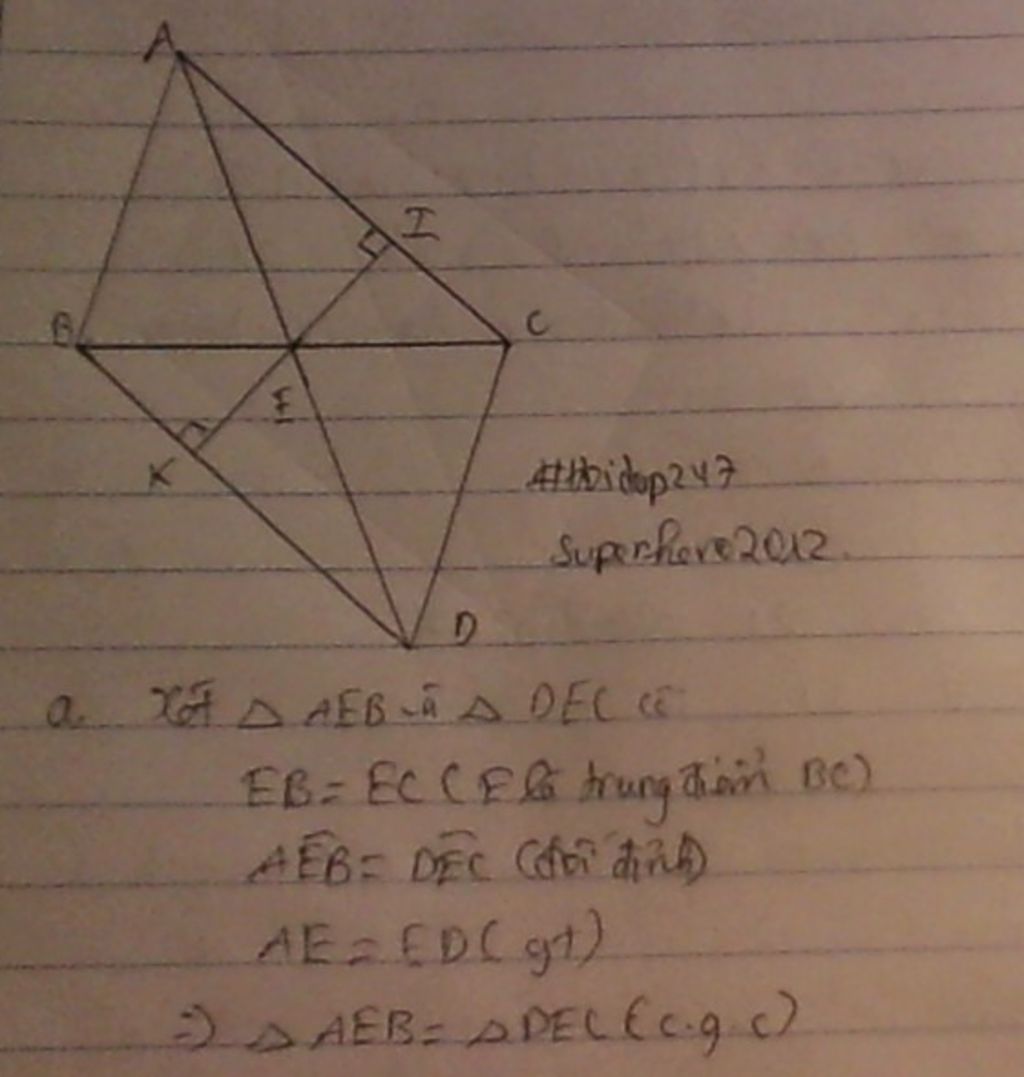 A
I
B
C
E
K
#Hoidap247
Superhero2012.
D
a. Xét △ AEB và △ DEC có
EB = EC (E là trung điểm BC)
AÊB = DÊC (đối đỉnh)
AE = ED (gt)
=> △ AEB = △ DEC (c.g.c)